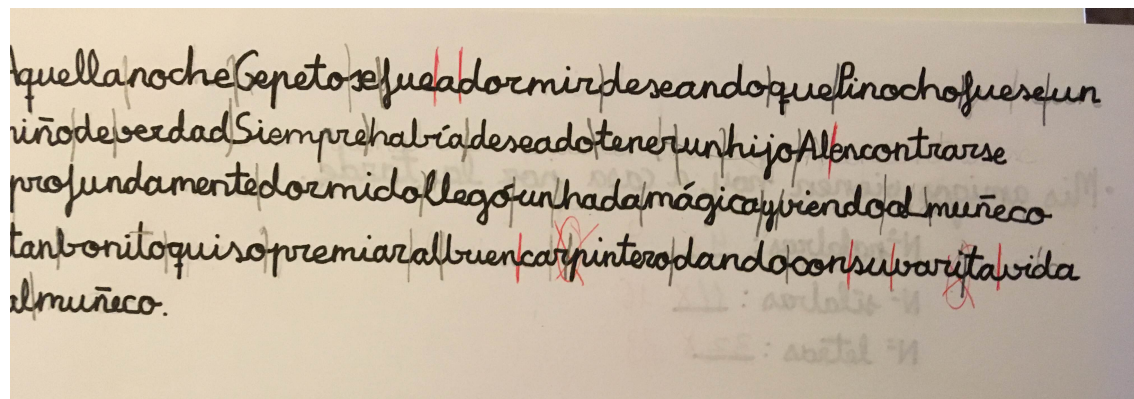 AquellanocheGepetosefueadormirdeseandoquePinochofueseun
niñodeverdadSiemprehabíadeseadotenerunhijoAlencontrarse
profundamentedormidollegóunhadamágicayviendoalmuñeco
tanbonitoquisopremiaralbuencarpinterodandoconsuvaritavida
almuñeco.
Nº sílabas:
Nº letras: